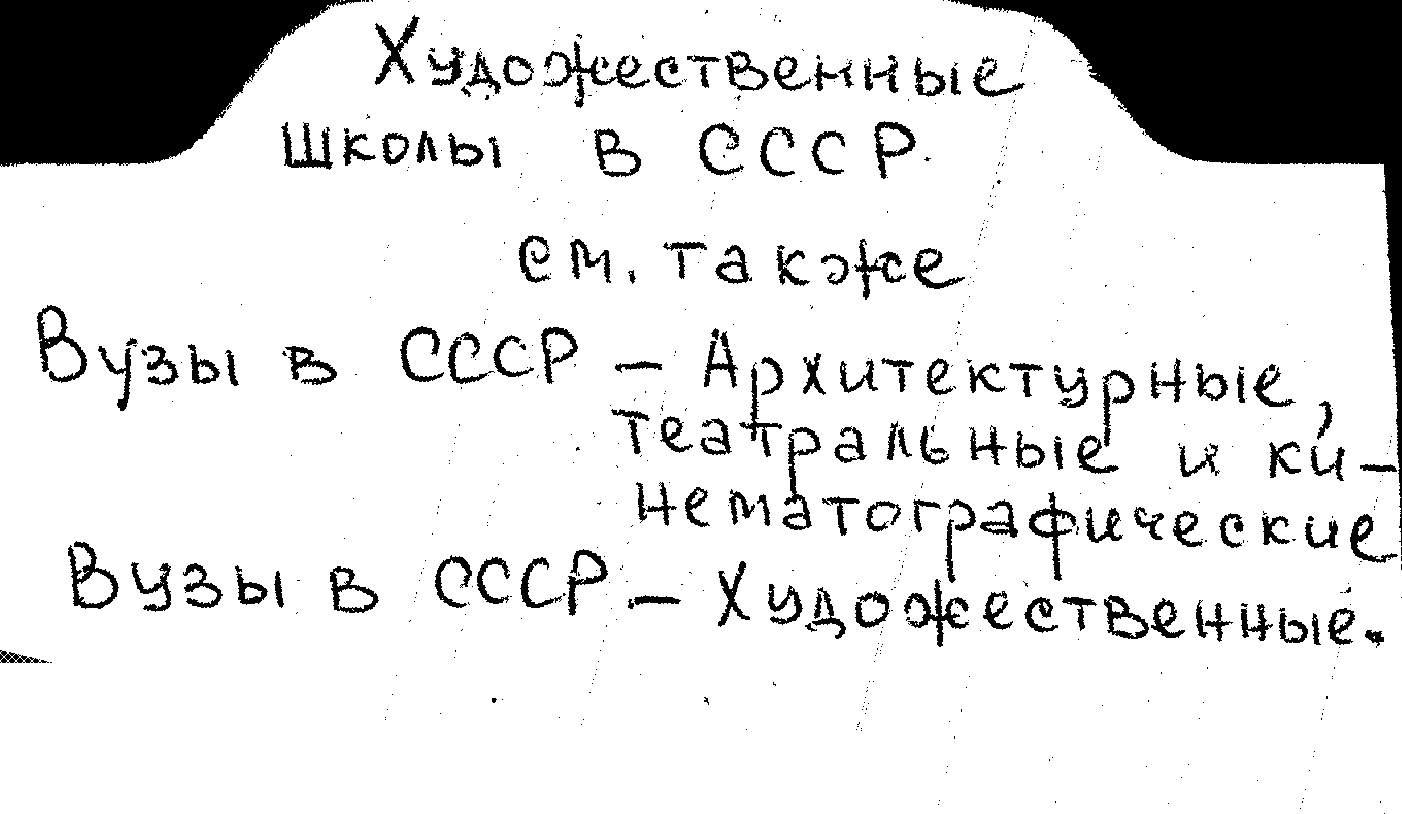 Художественные
школы в СССР.
см. также
Вузы в СССР – Архитектурные,
театральные и ки-
нематографические
Вузы в СССР – Художественные.